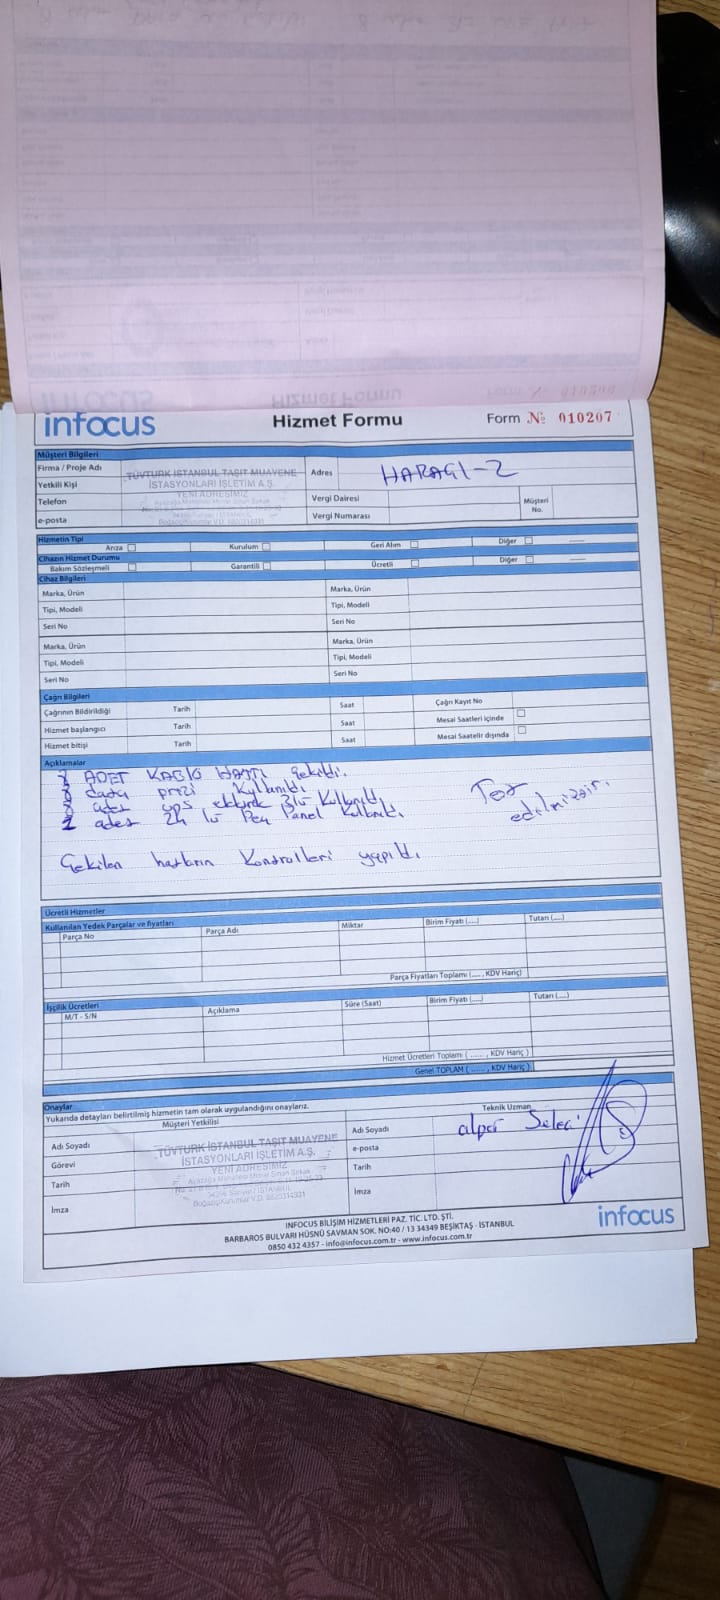 infocus
Hizmet Formu
Form № 010207
Müşteri Bilgileri
Firma / Proje Adı
TÜVTURK İSTANBUL TAŞIT MUAYENE
İSTASYONLARI İŞLETİM A.Ş.
YENİ ADRESİMİZ
Adres
HARAGI-2
Yetkili Kişi
Telefon
Vergi Dairesi
Müşteri No.
e-posta
Vergi Numarası
Hizmetin Tipi
Arıza
Kurulum
Geri Alım
Diğer
Cihazın Hizmet Durumu
Bakım Sözleşmeli
Garantili
Ücretli
Diğer
Cihaz Bilgileri
Marka, Ürün
Marka, Ürün
Tipi, Modeli
Tipi, Modeli
Seri No
Seri No
Marka, Ürün
Marka, Ürün
Tipi, Modeli
Tipi, Modeli
Seri No
Seri No
Çağrı Bilgileri
Çağrının Bildirildiği
Tarih
Saat
Çağrı Kayıt No
Hizmet başlangıcı
Tarih
Saat
Mesai Saatleri içinde
Hizmet bitişi
Tarih
Saat
Mesai Saatelir dışında
Açıklamalar
ADET KABLO HATTI çekildi.
data prizi kullanıldı
adet ups elektrik kullanıldı.
adet 24 lü Panel kullanıldı.
Test edilmiştir.
Çekilen hatların kontrolleri yapıldı.
Ücretli Hizmetler
Kullanılan Yedek Parçalar ve fiyatları
Parça No
Parça Adı
Miktar
Birim Fiyatı (....)
Tutarı (....)
Parça Fiyatları Toplamı (....., KDV Hariç)
İşçilik Ücretleri
M/T - S/N
Açıklama
Süre (Saat)
Birim Fiyatı (....)
Tutarı (....)
Hizmet Ücretleri Toplamı ( ..... , KDV Hariç )
Genel TOPLAM ( ..... , KDV Hariç )
Onaylar
Yukarıda detayları belirtilmiş hizmetin tam olarak uygulandığını onaylarız.
Müşteri Yetkilisi
Teknik Uzman
Adı Soyadı
TÜVTURK İSTANBUL TAŞIT MUAYENE
İSTASYONLARI İŞLETİM A.Ş.
YENİ ADRESİMİZ
Adı Soyadı
alper
Görevi
e-posta
Tarih
Tarih
İmza
İmza
INFOCUS BİLİŞİM HİZMETLERİ PAZ. TİC. LTD. ŞTİ.
BARBAROS BULVARI HÜSNÜ SAVMAN SOK. NO:40 / 13 34349 BEŞİKTAŞ - İSTANBUL
0850 432 4357 - info@infocus.com.tr - www.infocus.com.tr
infocus